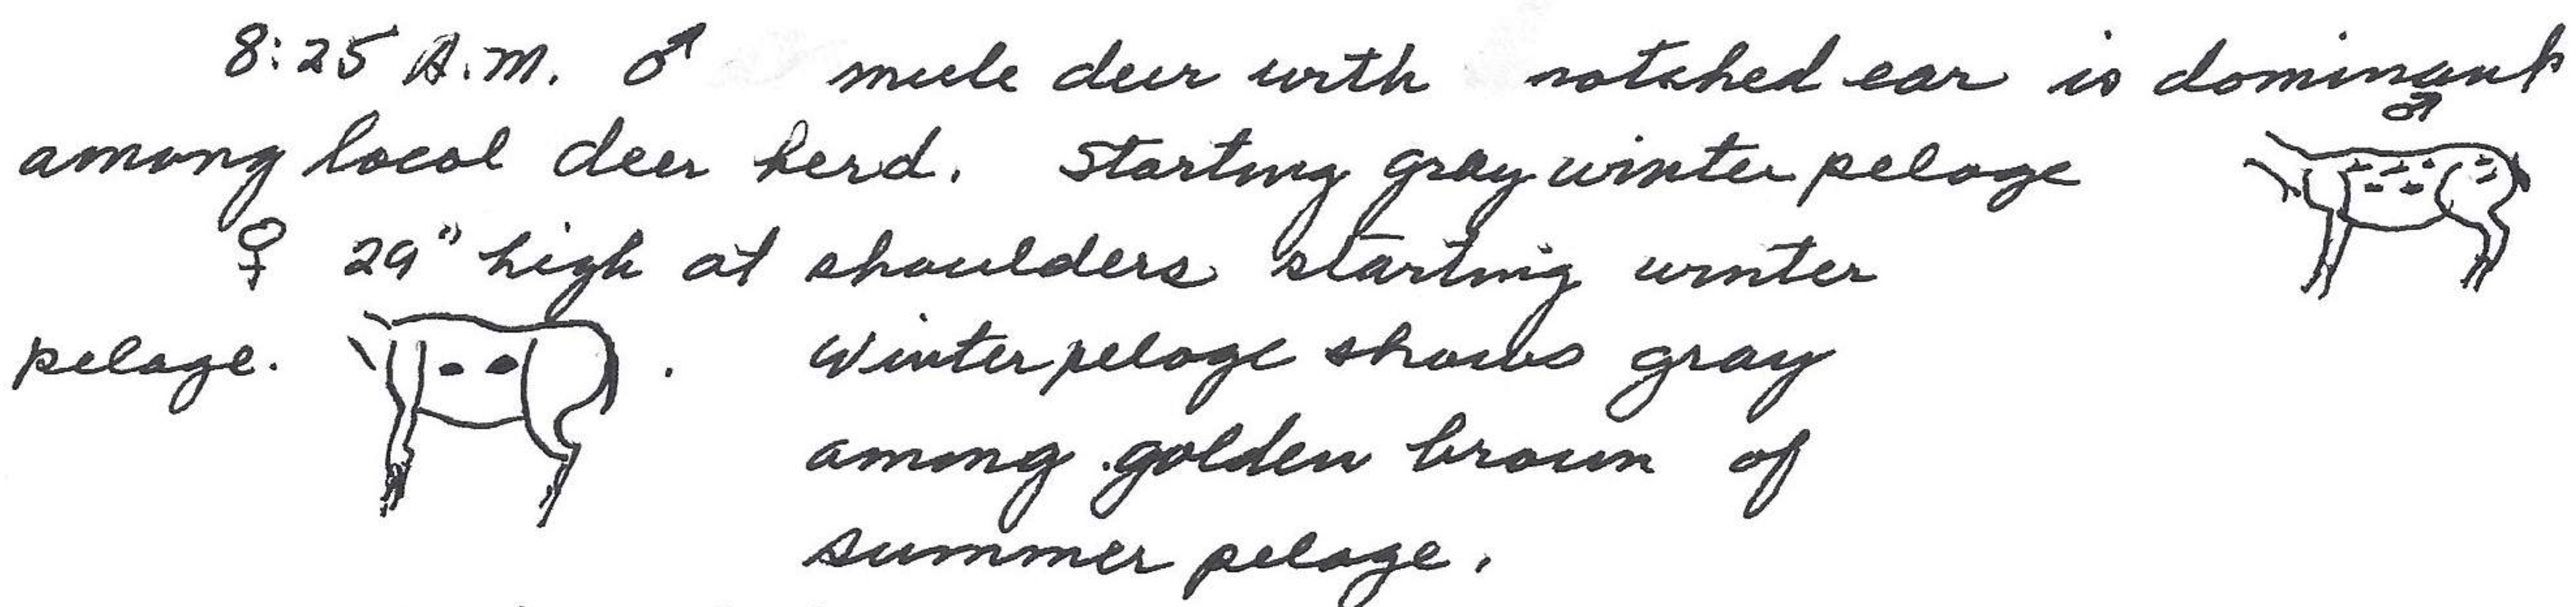 8:25 A.M. ♂ mule deer with notched ear is dominant
♂
among local deer herd. Starting gray winter pelage
♀ 29" high at shoulders starting winter
pelage. . Winter pelage shows gray
among golden brown of
summer pelage.